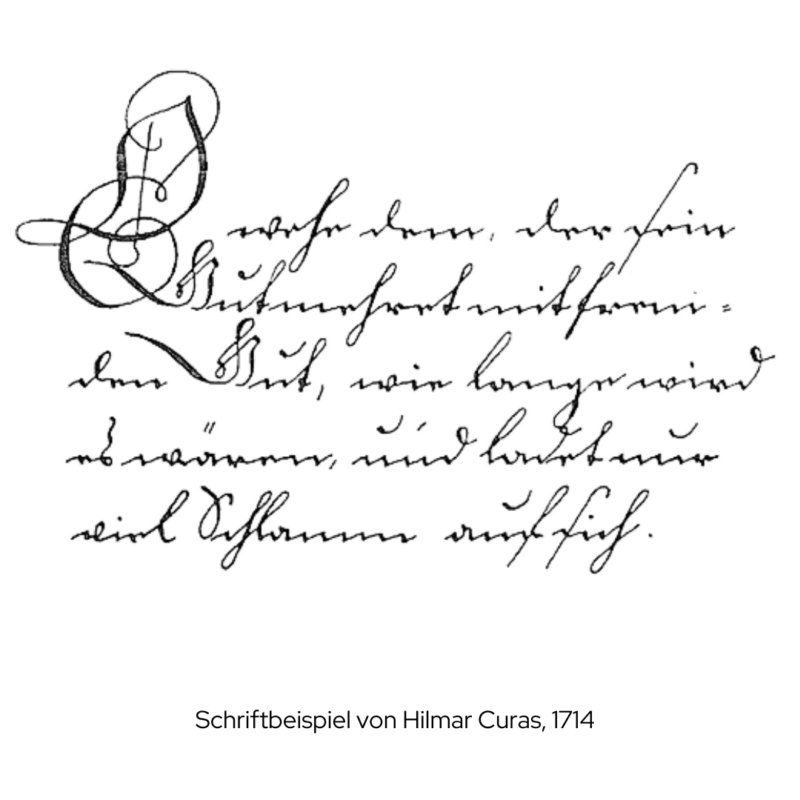 Wehe dem, der sein
Gut mehret mit frem=
den Gut, wie lange wird
es wären, und ladet nur
viel Schlamm auf sich.
Schriftbeispiel von Hilmar Curas, 1714